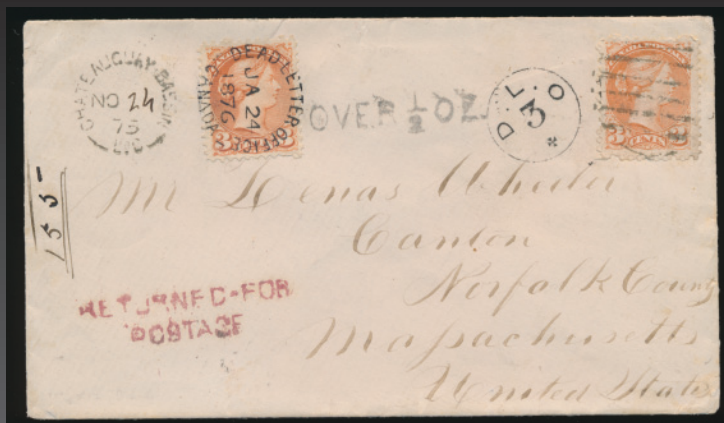 CHATEAUGUAY-BASIN
NO 24
75
DEAD LETTER OFFICE
CANADA
JA 24
1876
OVER ½ OZ.
D. L. O
3
*
3 CENTS
155-
Mr Wheeler
Canton
Norfolk County
Massachusetts
United States
RETURNED-FOR
POSTAGE